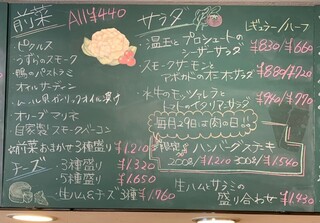 前菜 All ¥440
・ピクルス
・うずらのスモーク
・鴨のパストラミ
・オイルサーディン
・ムール貝ガーリックオイル漬け
・オリーブマリネ
・自家製スモークベーコン
・前菜おまかせ3種盛り ¥1,210
チーズ
・3種盛り ¥1,320
・5種盛り ¥1,650
・生ハム&チーズ3種 ¥1,760
サラダ レギュラー/ハーフ
・温玉とプロシュートのシーザーサラダ ¥830/¥660
・スモークサーモンとアボカドの サラダ ¥880/¥720
・水牛のモッツァレラとトマトのイタリアンサラダ ¥940/¥770
毎月29日は肉の日!!
ハンバーグステキ
200g/¥1,210 300g/¥1,540
生ハムとサラミの盛り合わせ ¥1,430